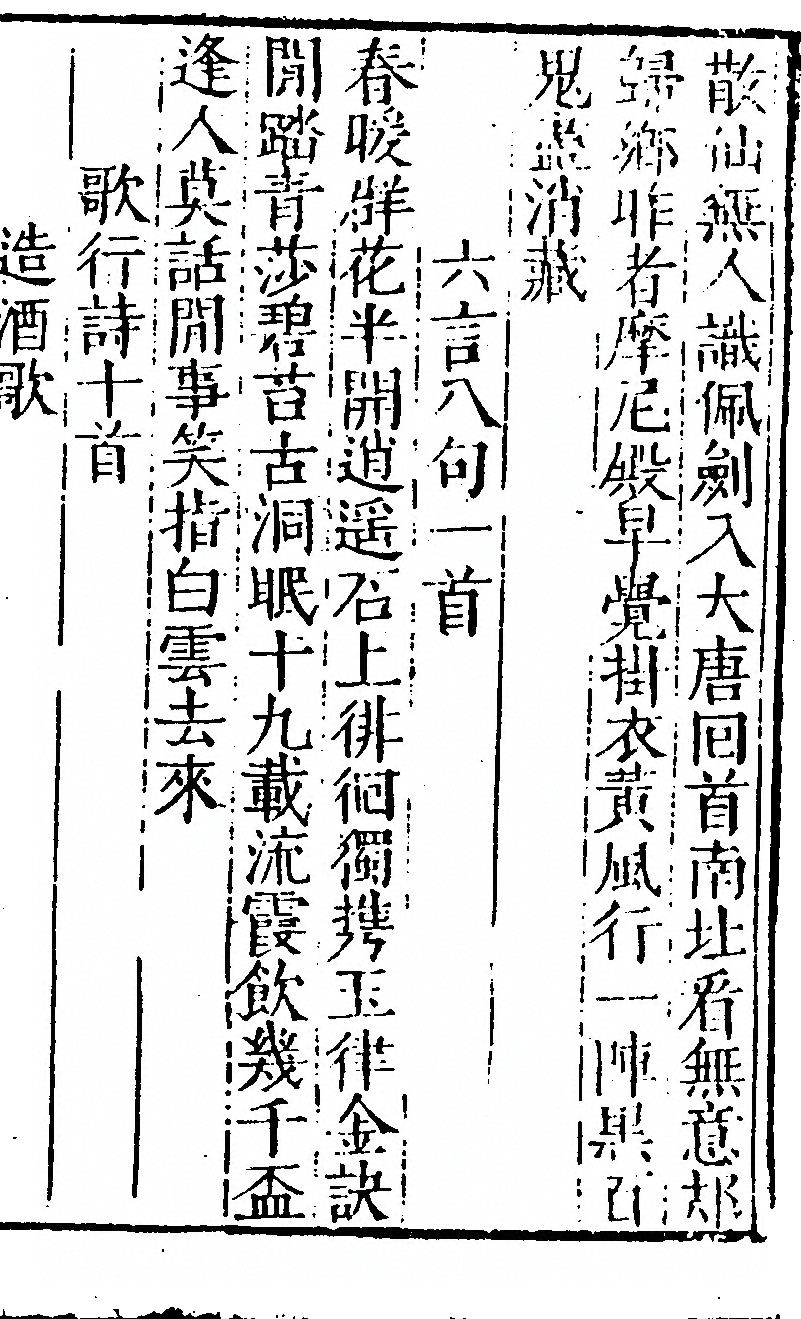 散仙無人識佩劍入大唐回首南北看無意却
歸鄉昨者摩尼殿早覺掛衣黃風行一陣果百
鬼盡消藏
六言八句一首
春暖群花半開逍遥石上徘徊獨携玉律金訣
閒踏青莎碧苔古洞眠十九載流霞飲幾千盃
逢人莫話閒事笑指白雲去來
歌行詩十首
造酒歌